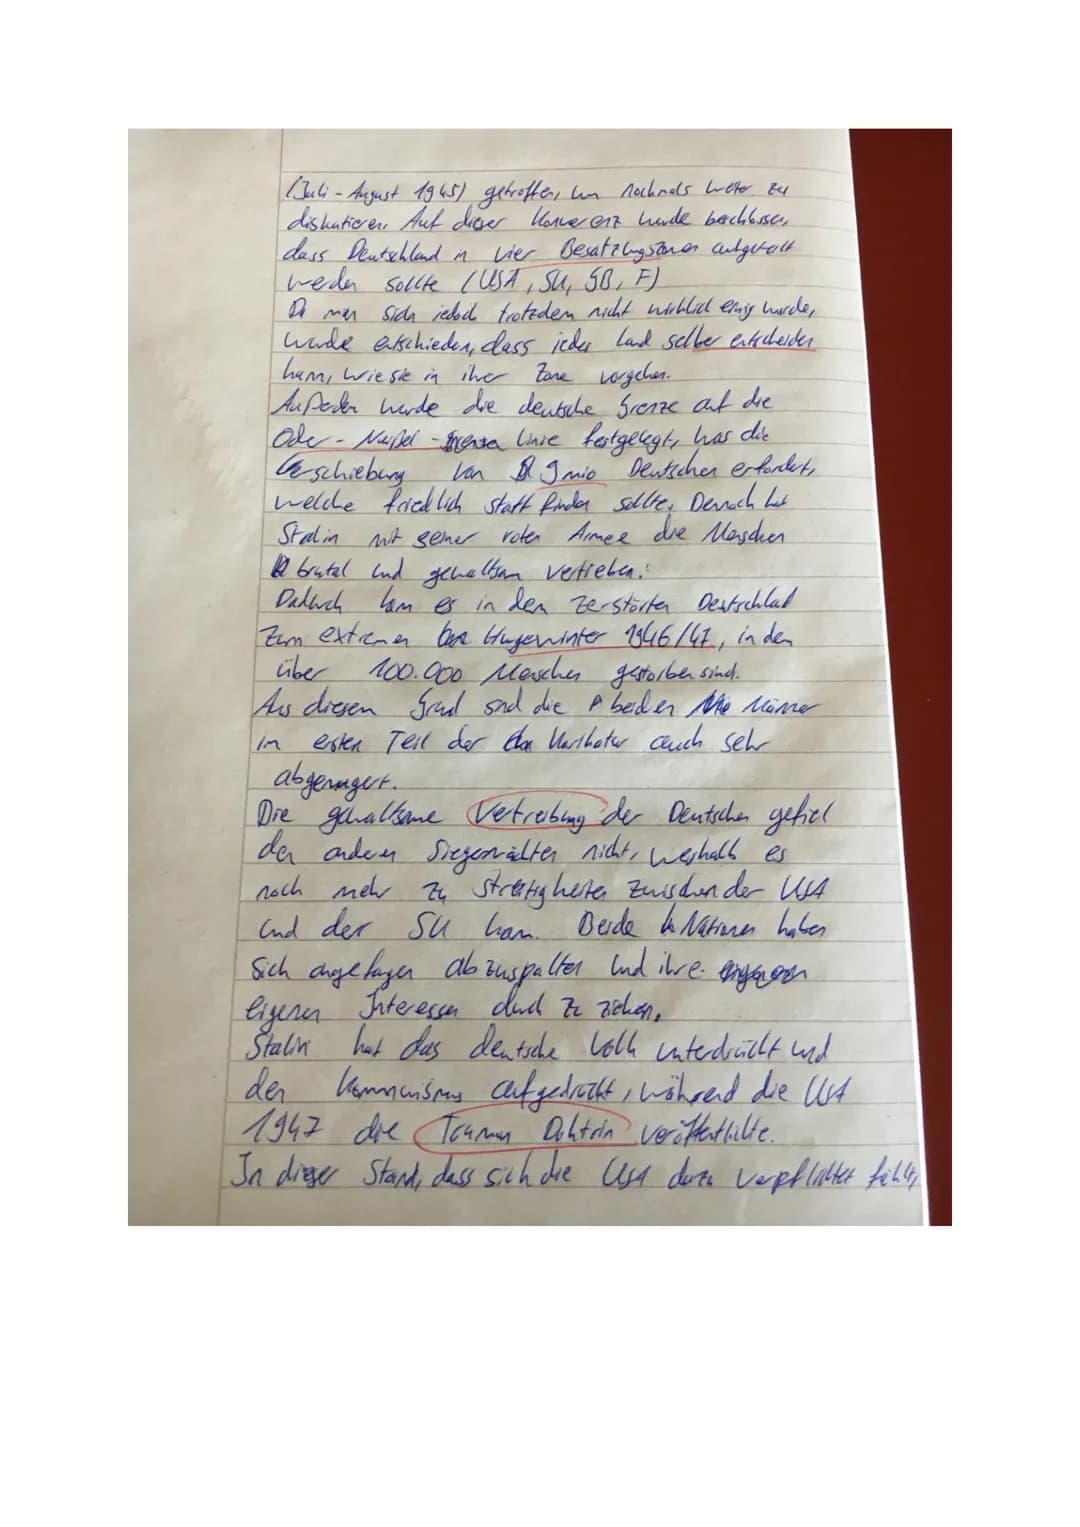 (Juli - August 1945) getroffen, um nochmals weter zu
diskutieren. Auf dieser Konverenz wurde beschlossen,
dass Deutschland in vier Besatzungszonen aufgeteilt
werden sollte (USA, SU, GB, F)
Da man sich jedoch trotzdem nicht wirklich einig wurde,
wurde entschieden, dass jedes Land selber entscheiden
kann, wie sie in ihrer Zone vorgehen.
Außerden wurde die deutsche Grenze auf die
Oder - Neißel - Linie festgelegt, was die
Verschiebung von 9 mio Deutschen erfordert,
welche friedlich statt finden sollte. Dennoch hat
Stalin mit seiner roten Armee die Menschen
brutal und gewaltsam vertrieben.
Dadurch kam es in den zerstörten Deutschlad
zum extremen Hungerwinter 1946/47, in den
über 100.000 Menschen gestorben sind.
Aus diesem Grund sind die beiden Männer
im ersten Teil der Karikatur auch sehr
abgemagert.
Die gewaltsame Vertreibung der Deutschen gefiel
den anderen Siegermächten nicht, weshalb es
noch mehr zu Streitigkeiten zwischen der USA
und der SU kam. Beide Nationen haben
sich angefangen abzuspalten und ihre
eigenen Interessen durch zu ziehen.
Stalin hat das deutsche Volk unterdrückt und
den Kommunismus aufgedrückt, während die USA
1947 die Truman Doktrin veröffentlichte.
In dieser Stand, dass sich die USA dazu verpflichtet fühlt,